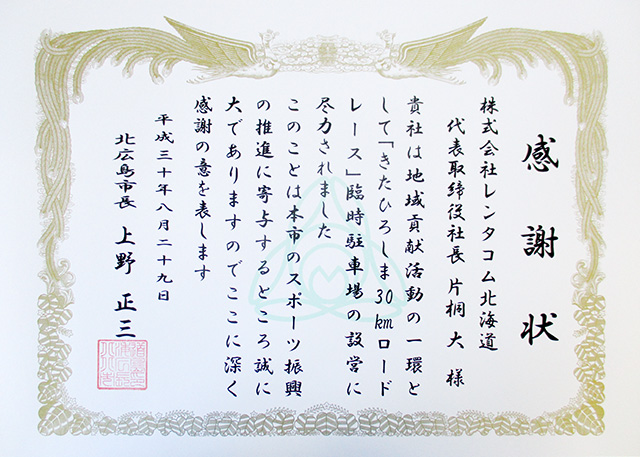 感謝状
株式会社レンタコム北海道
代表取締役社長 片桐 大 様
貴社は地域貢献活動の一環と
して「きたひろしま30kmロード
レース」臨時駐車場の設営に
尽力されました
このことは本市のスポーツ振興
の推進に寄与するところ誠に
大でありますのでここに深く
感謝の意を表します
平成三十年八月二十九日
北広島市長 上野 正三